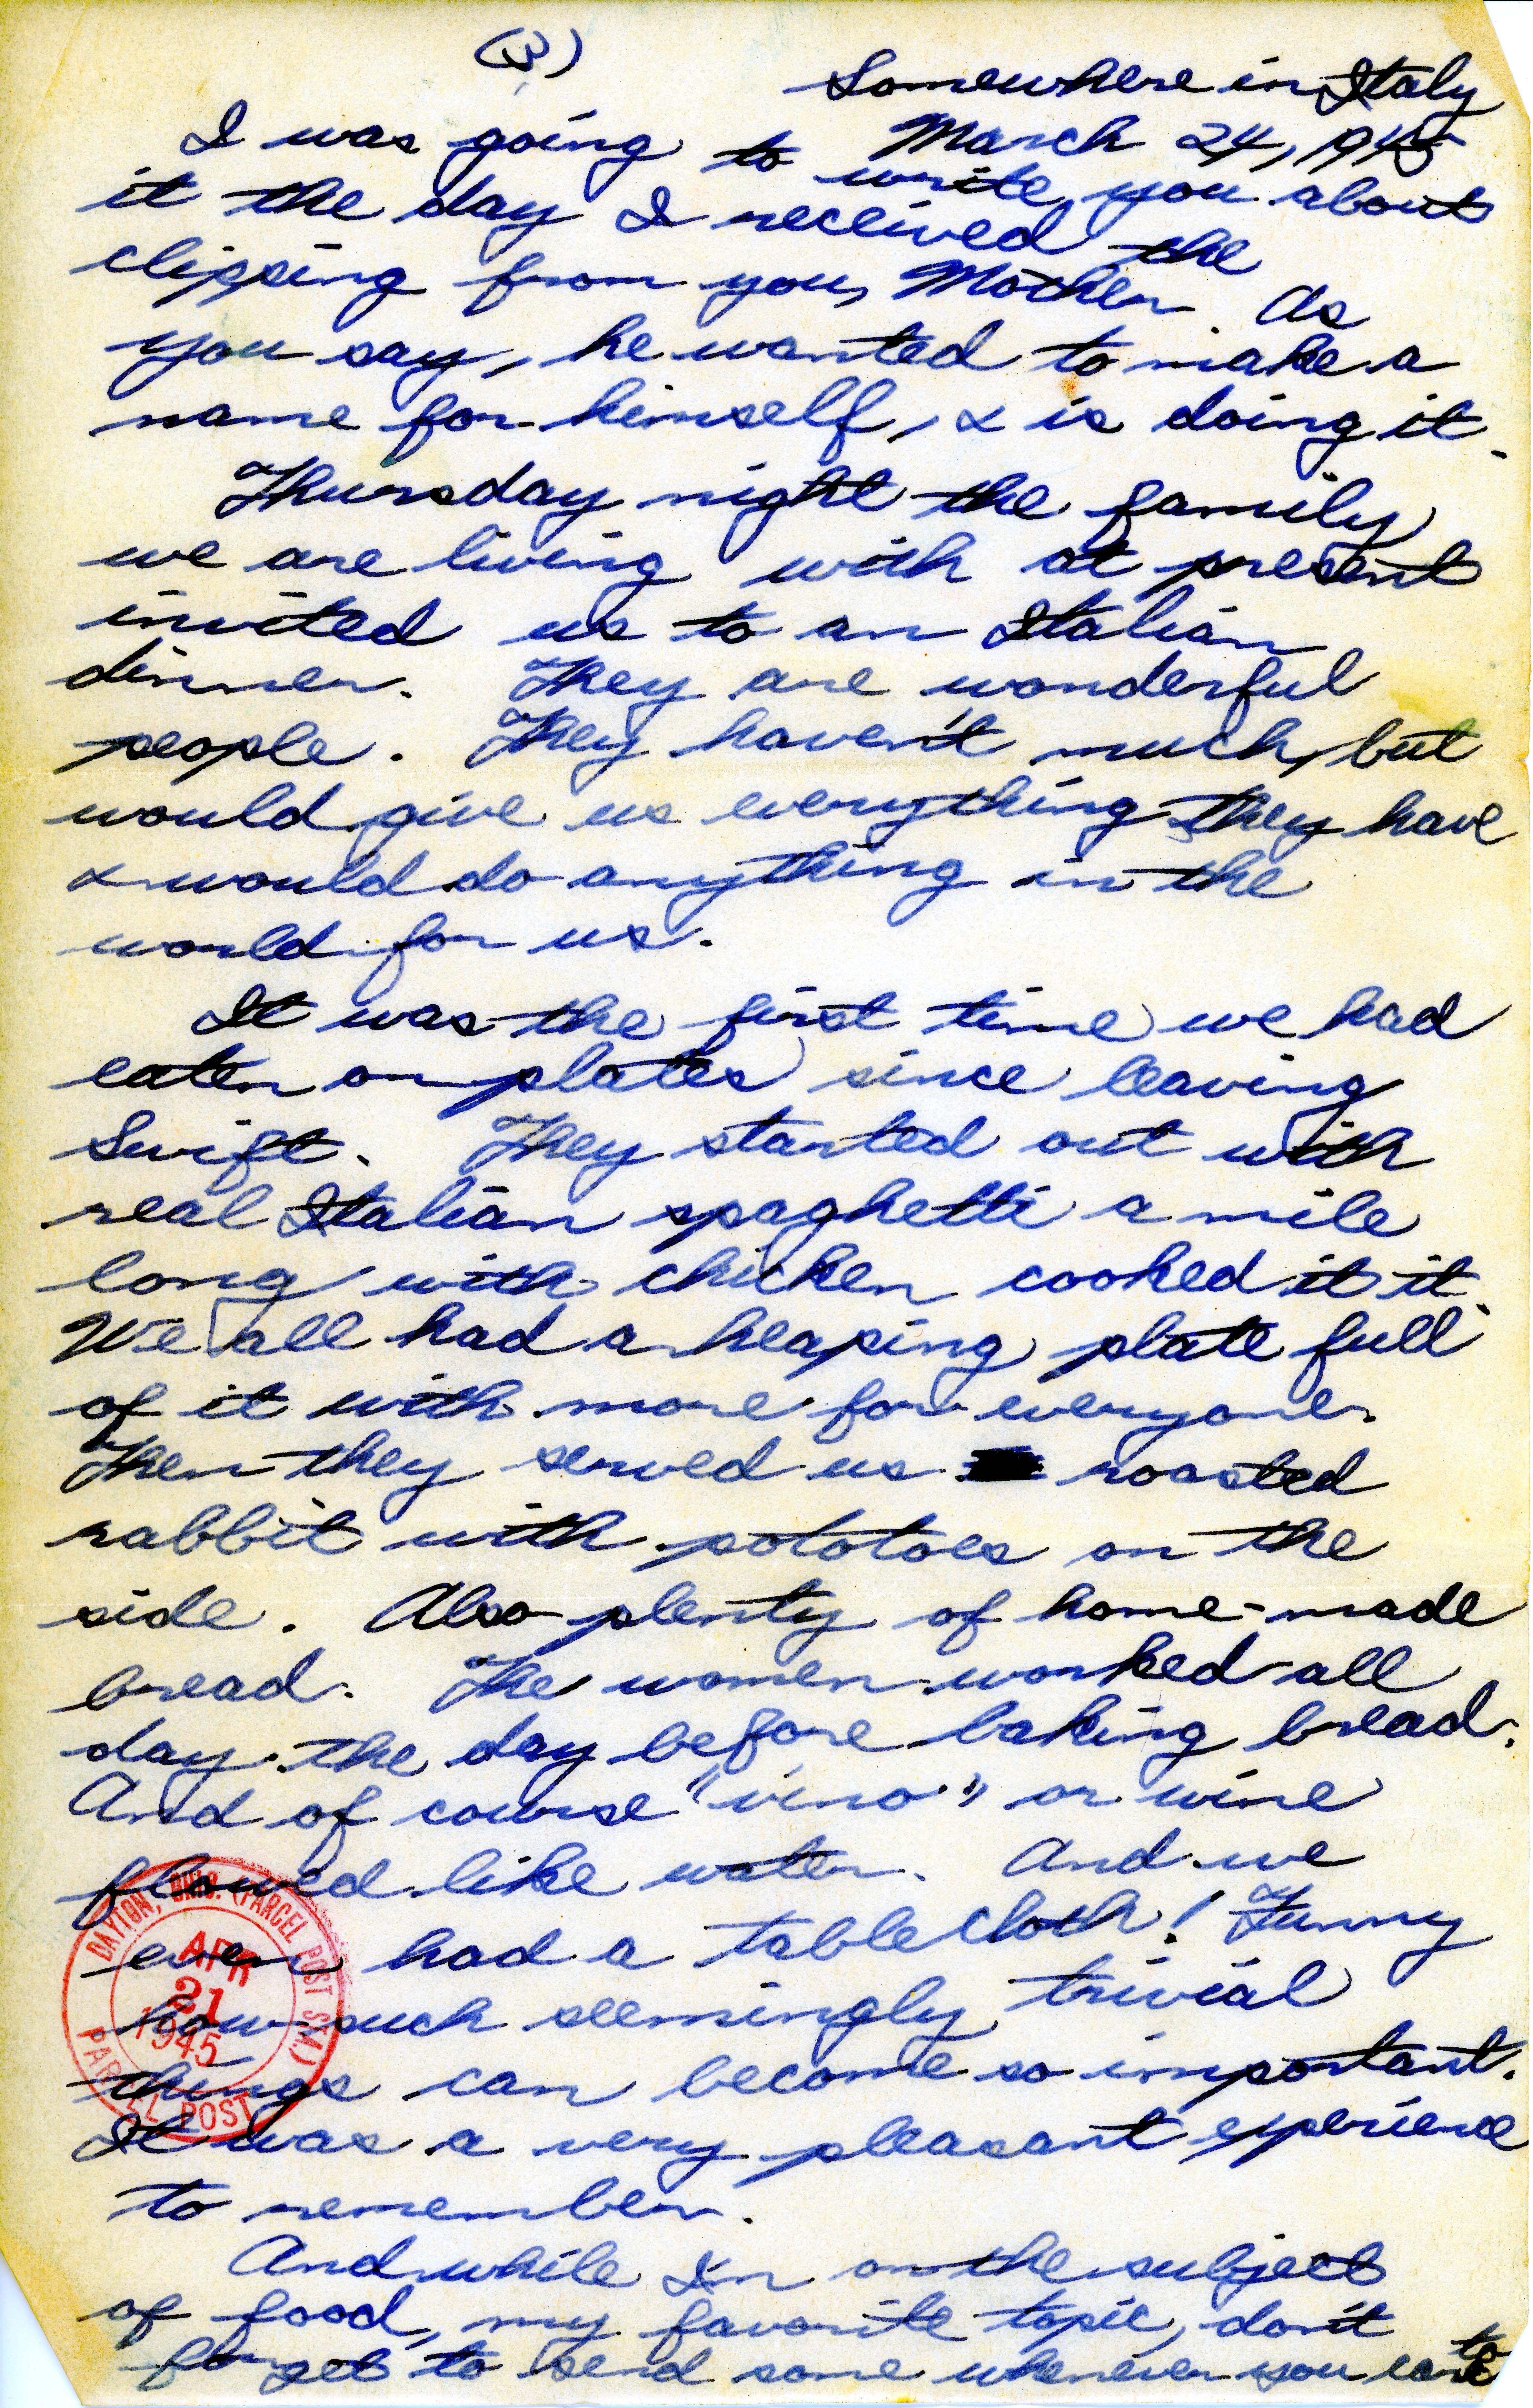 (3)
Somewhere in Italy
March 24, 1945
I was going to write you about
it the day I received the
clipping from you, Mother. As
you say, he wanted to make a
name for himself, & is doing it.
Thursday night the family
we are living with at present
invited us to an Italian
dinner. They are wonderful
people. They haven't much, but
would give us everything they have
& would do anything in the
world for us.
It was the first time we had
eaten on plates since leaving
Swift. They started out with
real Italian spaghetti a mile
long with chicken cooked it it.
We all had a heaping plate full
of it with more for everyone.
Then they served us roasted
rabbit with pototoes on the
side. Also plenty of home-made
bread. The women worked all
day the day before baking bread.
And of course "vino" or wine
flowed like water. And we
even had a table cloth! Funny
how such seemingly trivial
things can become so important.
It was a very pleasant experience
to remember.
And while I'm on the subject
of food, my favorite topic, don't
forget to send some whenever you care to
DAYTON, OHIO. (PARCEL POST STA.)
APR
21
1945
PARCEL POST